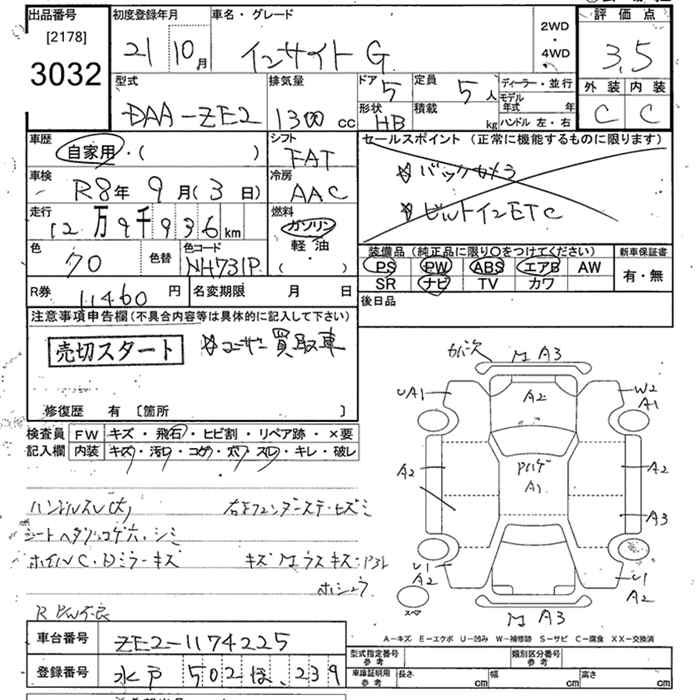 出品番号
[2178]
3032
初度登録年月
21 10月
車名・グレード
インサイト G
2WD
・
4WD
評価点
3.5
外装 内装
C C
型式
DAA-ZE2
排気量
1300 cc
ドア 5
形状 HB
定員 5人
積載 kg
ディーラー・並行
モデル年式 年
ハンドル 左・右
車歴
自家用・( )
シフト
FAT
セールスポイント (正常に機能するものに限ります)
☆バックカメラ
☆ビルトインETC
車検
R8年 9月(3日)
冷房
AAC
走行
12万9千936km
燃料
ガソリン
軽油
( )
色
クロ
色替
色コード
NH731P
装備品 (純正品に限り○をつけてください)
PS PW ABS エアB AW
SR ナビ TV カワ
新車保証書
有・無
R券 11460円
名変期限 月 日
後日品
注意事項申告欄(不具合内容等は具体的に記入して下さい)
売切スタート
☆ユーザー買取車
修復歴 有 [箇所 ]
検査員
記入欄
FW キズ・飛石・ヒビ割・リペア跡・×要
内装 キズ・汚レ・コゲ・穴・スレ・キレ・破レ
ハンドルスレ(大)
シートヘタリ、コゲ穴・シミ
ホイルC・Dミラーキズ
M A3
UA1
A2
W2
A1
A2
A1
A2
A3
U1
A2
U1
A2
スペア
M A3
A-キズ E-エクボ U-凹み W-補修跡 S-サビ C-腐食 XX-交換済
車台番号 ZE2-1174225
登録番号 水戸 502 ほ 239
型式指定番号
参考
類別区分番号
参考
車庫証明
参考
長さ cm
幅 cm
高さ cm